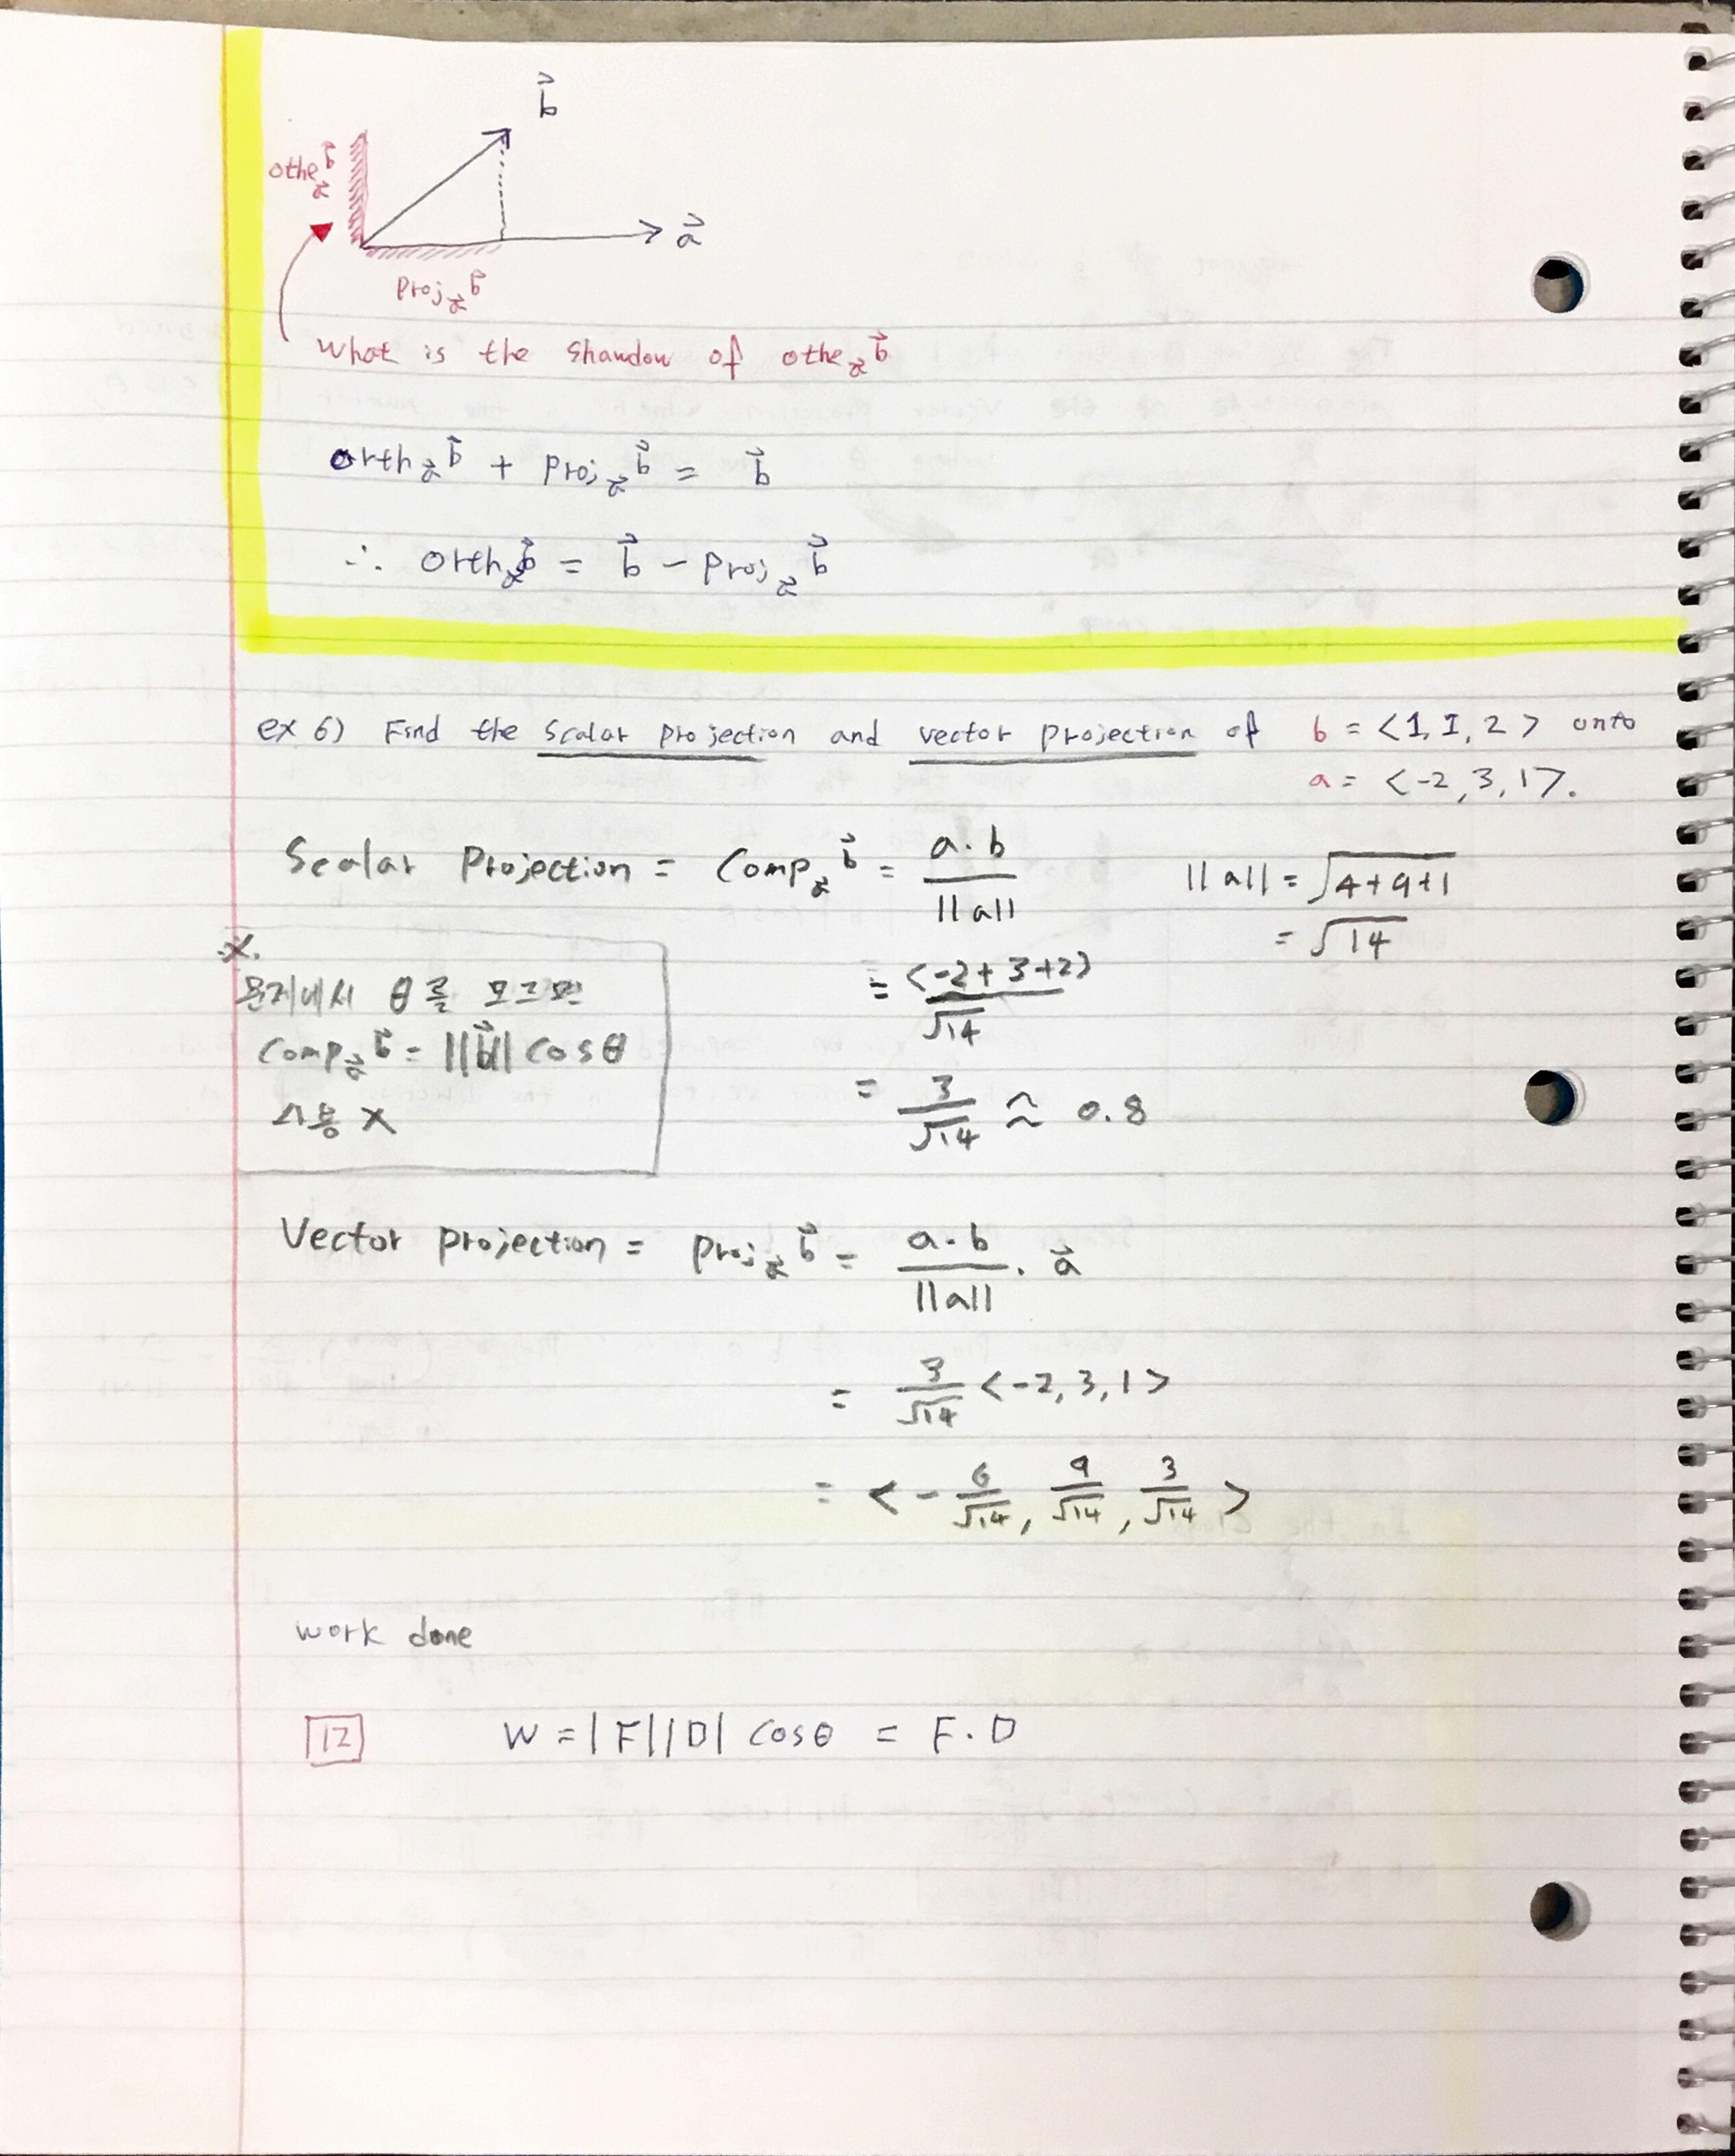 b⃗
othe_a⃗ b⃗
a⃗
Proj_a⃗ b⃗
What is the shawdow of othe_a⃗ b⃗
orth_a⃗ b⃗ + Proj_a⃗ b⃗ = b⃗
∴ orth_a⃗ b⃗ = b⃗ - Proj_a⃗ b⃗
ex 6) Find the scalar projection and vector projection of b = <1, 1, 2> onto
a = <-2, 3, 1>.
Scalar Projection = Comp_a⃗ b⃗ = a·b / ||a||
||a|| = √(4+9+1)
= √14
= <-2+3+2> / √14
= 3/√14 ≈ 0.8
※.
문제에서 θ를 모르면
Comp_a⃗ b⃗ = ||b⃗|| cosθ
사용 X
Vector projection = Proj_a⃗ b⃗ = a·b / ||a|| · a⃗
= 3/√14 <-2, 3, 1>
= < -6/√14, 9/√14, 3/√14 >
work done
12 W = |F||D| cosθ = F·D